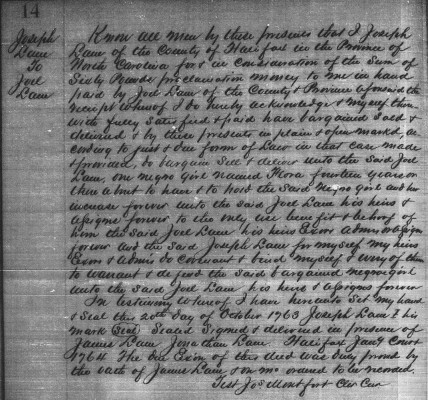 14
Joseph
Lane
To
Joel
Lane
Know all men by these presents that I Joseph
Lane of the County of Halifax in the Province of
North Carolina for & in Consideration of the Sum of
Sixty Pounds proclamation money to me in hand
paid by Joel Lane of the County & Province aforesaid the
receipt whereof I do hereby acknowledge & myself then
with fully Satisfied & paid have bargained Sold &
delivered & by these presents in plain & open market, ac
cording to just & due form of Law in that case made
& provided, do bargain Sell & deliver unto the Said Joel
Lane, one negro girl named Flora fourteen years or
there about to have & to hold the Said Negro girl and her
increase forever unto the Said Joel Lane his heirs &
assigns forever to the only use benefit & behoof of
him the Said Joel Lane his heirs Exors Admrs & assigns
forever and the Said Joseph Lane for myself my heirs
Exors & Admrs do Covenant & bind myself & every of them
to warrant & defend the Said bargained negro girl
unto the Said Joel Lane his heirs & assigns forever
In testimony whereof I have hereunto Set my hand
& Seal this 20th day of October 1763 Joseph Lane his
mark Seal Sealed Signed & delivered in presence of
James Lane Jonathan Lane. Halifax Jany Court
1764 The Exn of this deed was duly proved by
the oath of James Lane & on mo ordered to be recorded.
Test Jos Montfort Cler Cur